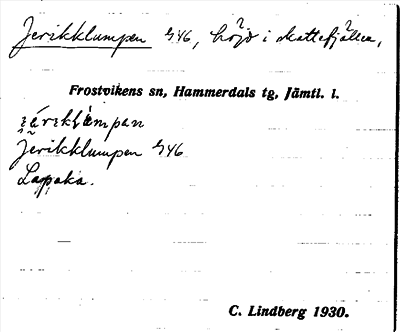 Jerikklumpen 746, höjd i skattefjällen,
Frostvikens sn, Hammerdals tg, Jämtl. l.
Jerikklumpen 746
Lapska.
C. Lindberg 1930.